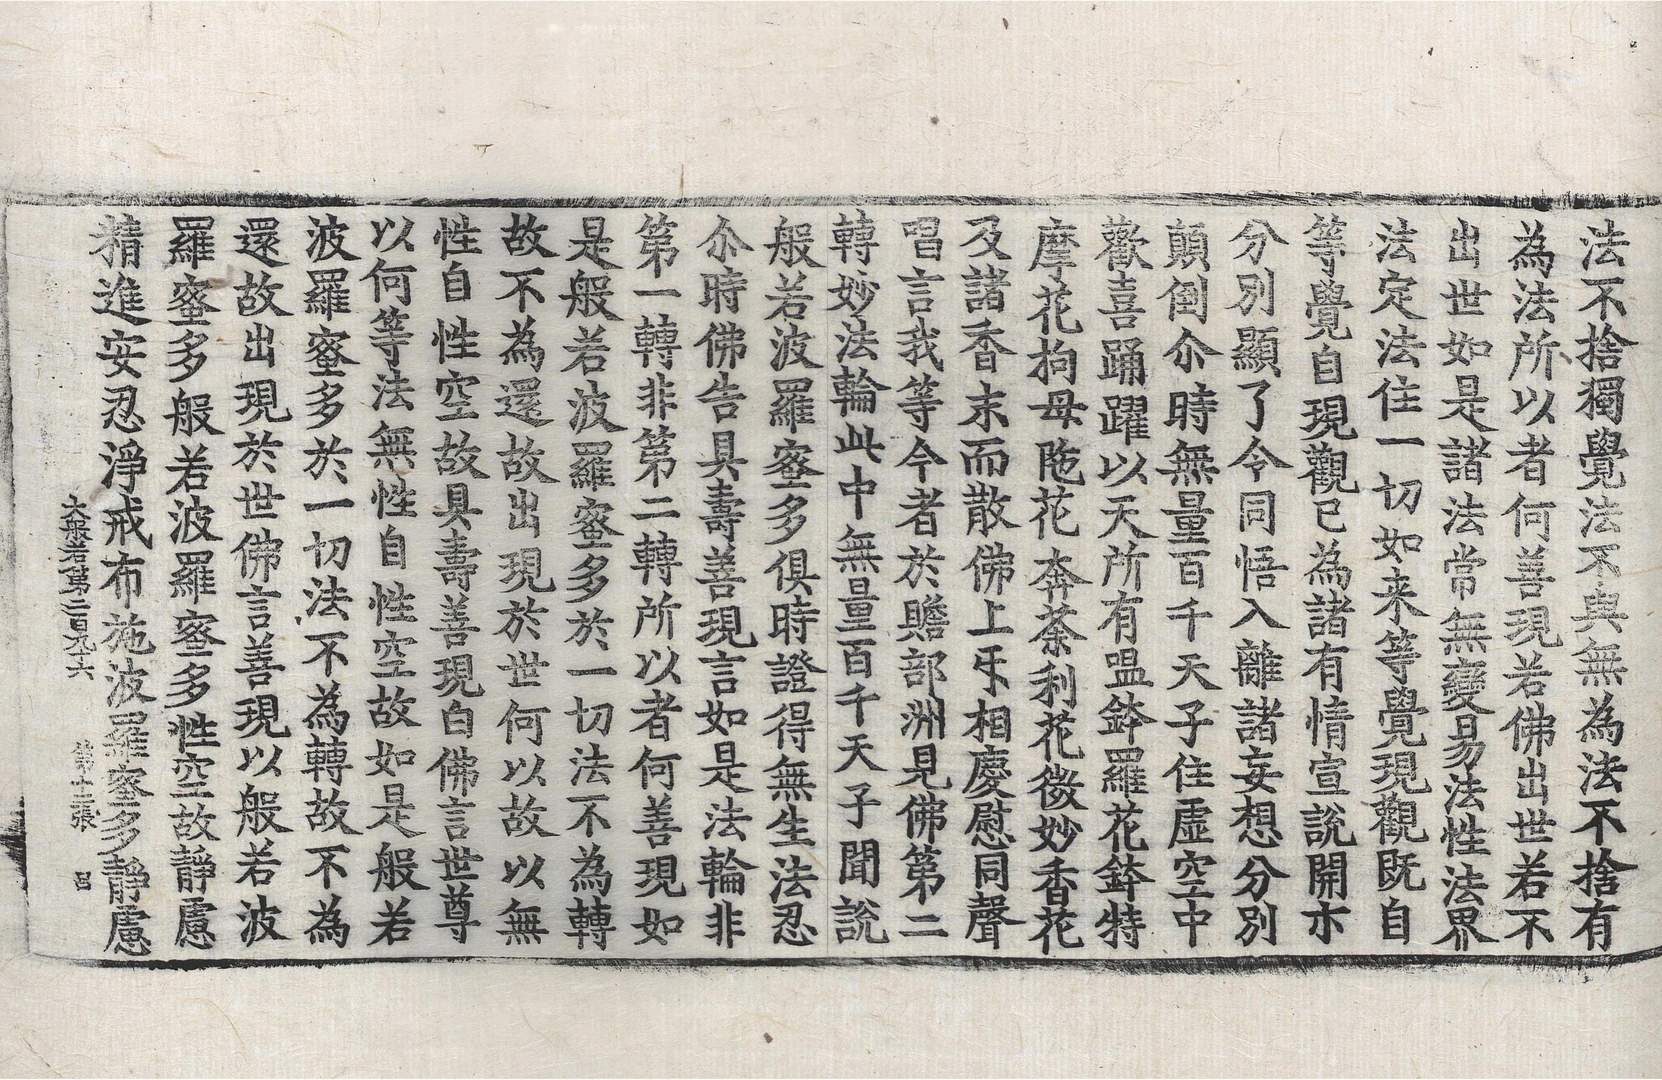 法不捨獨覺法不與無為法不捨有
為法所以者何善現若佛出世若不
出世如是諸法常無變易法性法界
法定法住一切如来等覺現觀既自
等覺自現觀已為諸有情宣說開示
分別顯了令同悟入離諸妄想分別
顛倒尒時無量百千天子住虛空中
歡喜踊躍以天所有嗢鉢羅花鉢特
摩花拘母陁花奔荼利花微妙香花
及諸香末而散佛上㸦相慶慰同聲
唱言我等今者於贍部洲見佛第二
轉妙法輪此中無量百千天子聞說
般若波羅蜜多俱時證得無生法忍
尒時佛告具壽善現言如是法輪非
第一轉非第二轉所以者何善現如
是般若波羅蜜多於一切法不為轉
故不為還故出現於世何以故以無
性自性空故具壽善現白佛言世尊
以何等法無性自性空故如是般若
波羅蜜多於一切法不為轉故不為
還故出現於世佛言善現以般若波
羅蜜多般若波羅蜜多性空故靜慮
精進安忍淨戒布施波羅蜜多靜慮
大般若第二百九十六 第十二張